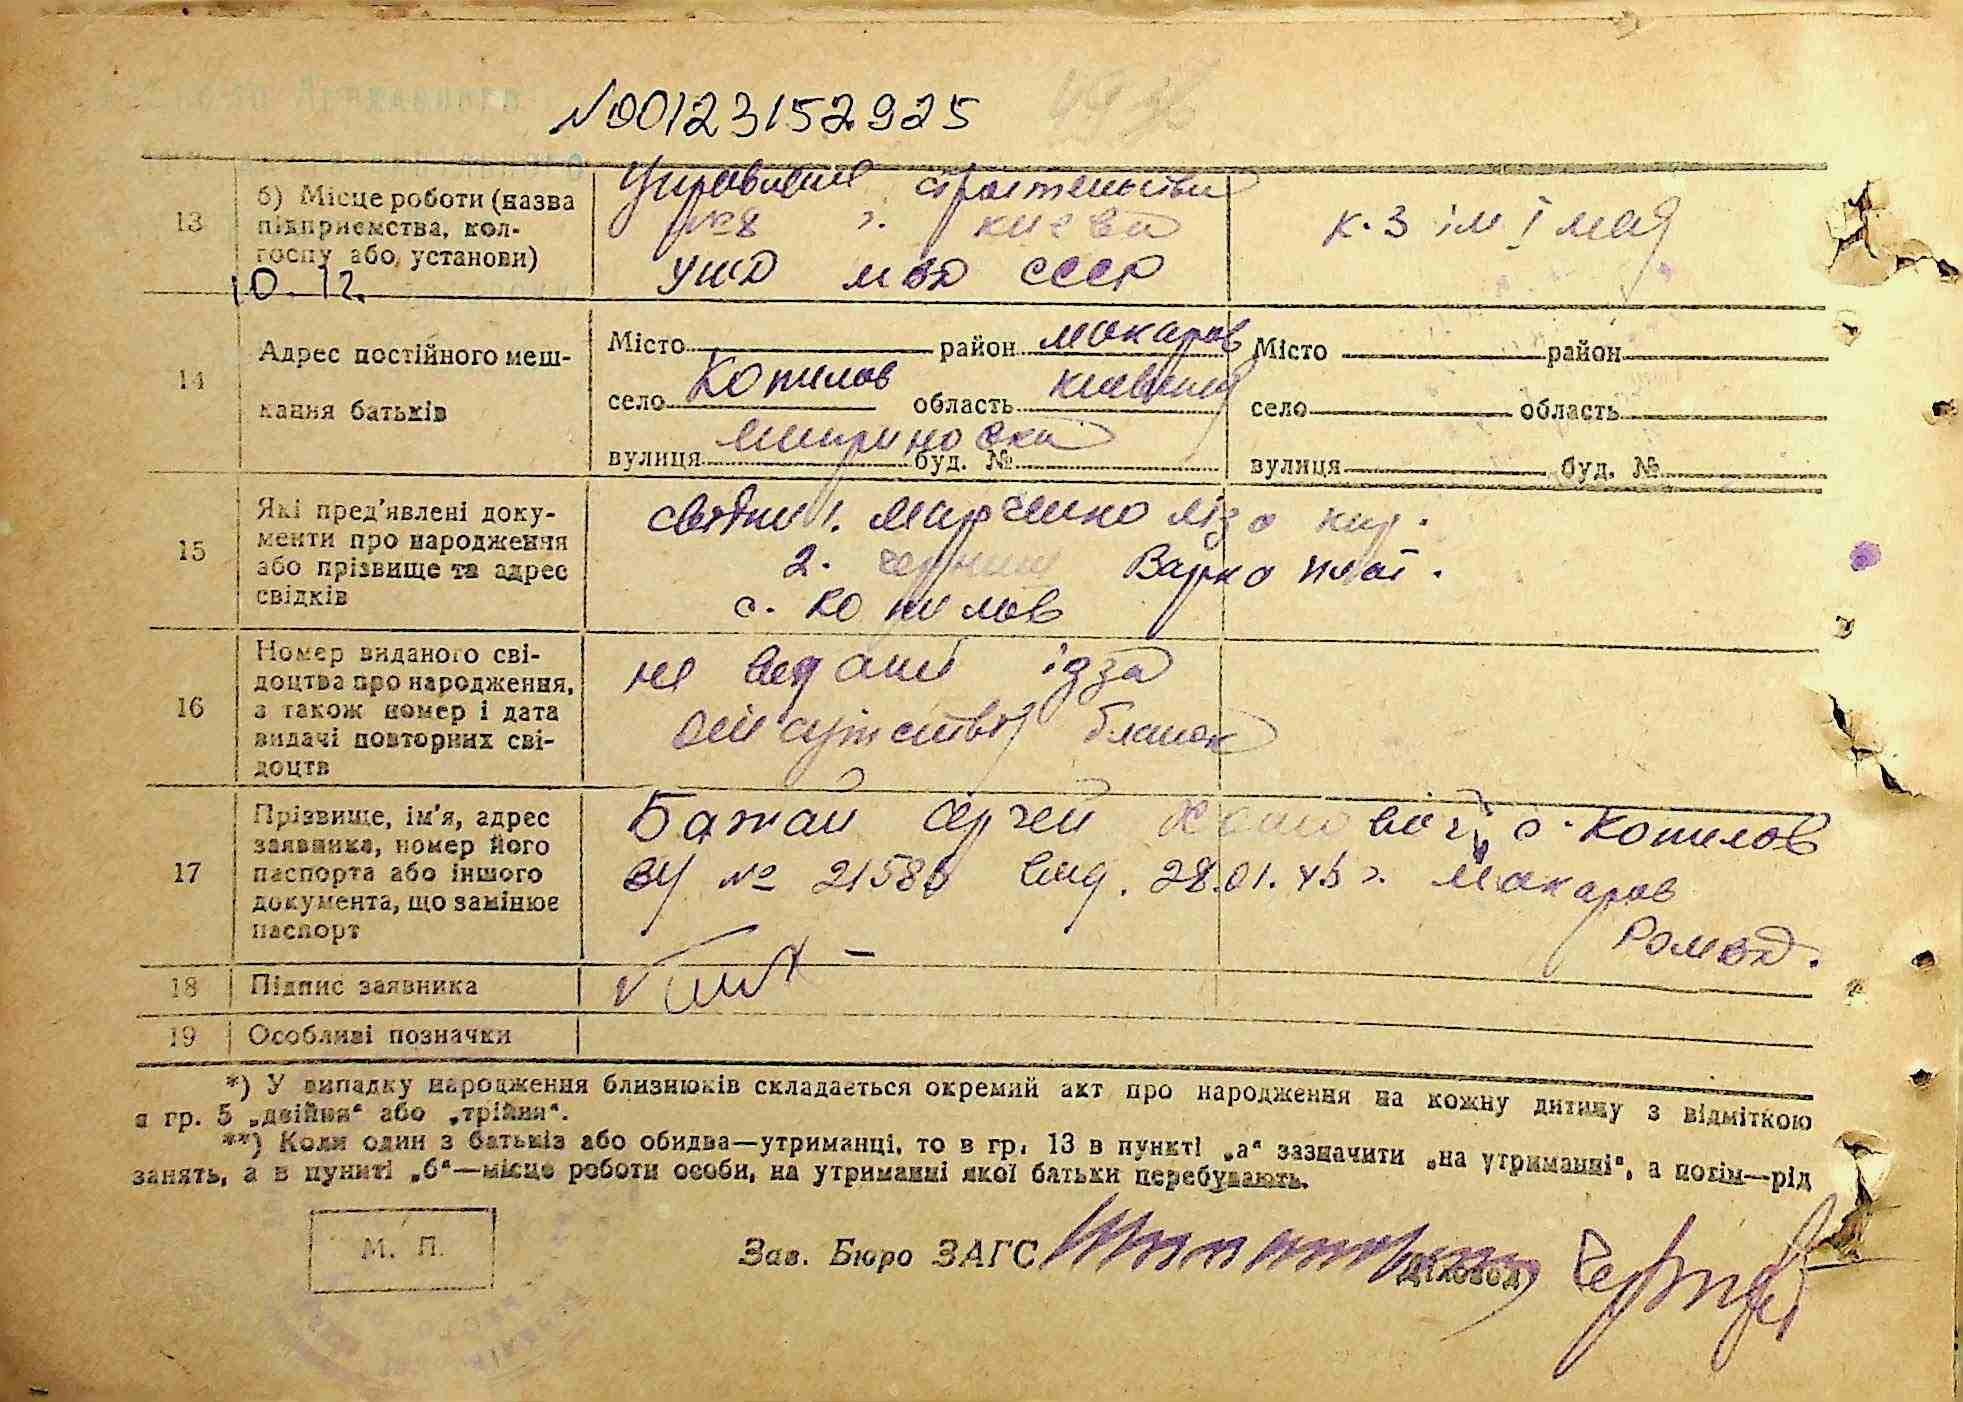 №00123152925
13
б) Місце роботи (назва підприємства, колгоспу або установи)
10.12.
Управление строительства
№8 г. Киева
УШД МВД СССР
к-з ім 1 мая
14
Адрес постійного мешкання батьків
Місто район Макаров
село Копилов область Киевська
вулиця буд. №
Місто район
село область
вулиця буд. №
15
Які пред'явлені документи про народження або прізвище та адрес свідків
свідки 1. Марченко Ліза
2. Варка
с. Копилов
16
Номер виданого свідоцтва про народження, а також номер і дата видачі повторних свідоцтв
не видані ідза
отсуцтвія бланок
17
Прізвище, ім'я, адрес заявника, номер його паспорта або іншого документа, що замінює паспорт
Бажай Сергей с. Копилов
ву № 21586 вид. 28.01.45 г. Макаров
РОМВД.
18
Підпис заявника
19
Особливі позначки
*) У випадку народження близнюків складається окремий акт про народження на кожну дитину з відміткою
в гр. 5 „двійня“ або „трійня“.
**) Коли один з батьків або обидва—утриманці, то в гр. 13 в пункті „а“ зазначити „на утриманні“, а потім—рід
занять, а в пункті „б“—місце роботи особи, на утриманні якої батьки перебувають.
М. П.
Зав. Бюро ЗАГС
Діловод